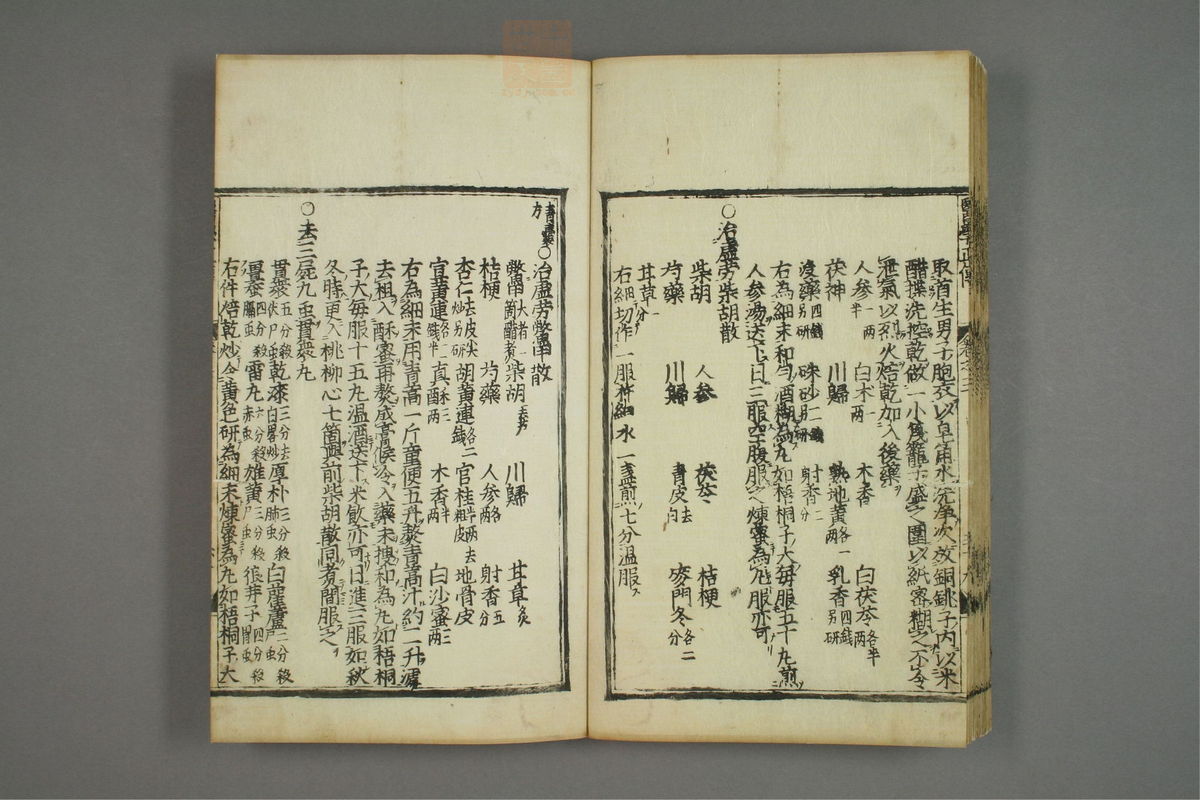 取首生男子胞衣以皁角水洗淨次放銅銚子内以米
醋撲洗控乾做一小篾籠子盛之圍以紙密糊之不令
泄氣以烈火焙乾加入後藥
人參一兩半 白朮一兩 木香 白茯苓各半兩
茯神 川歸 熟地黃各一兩 乳香四錢另研
沒藥四錢另研 硃砂二錢另研 射香二分
右為細末和勻酒糊為丸如梧桐子大每服五十丸煎
人參湯送下日三服空腹服之煉蜜為丸服亦可
○治虛勞柴胡散
柴胡 人參 茯苓 桔梗
芍藥 川歸 青皮去白 麥門冬各二分
甘草一分
右細切作一服 細 水一盞煎七分温服
青囊方○治虛勞鱉甲散
鱉甲大者一箇醋煮 柴胡 川歸 甘草炙
桔梗 芍藥 人參各兩 射香五分
杏仁去皮尖炒另研 胡黃連各二錢 官桂半兩去粗皮 地骨皮
宣黃連各二錢半 真酥三兩 木香半兩 白沙蜜三兩
右為細末用青蒿一斤童便五升熬青蒿汁約一升濾
去柤入酥蜜再熬成膏候冷入藥末搜和為丸如梧桐
子大每服十五丸温酒送下米飲亦可日進三服如秋
冬時更入桃柳心七箇與前柴胡散同煮間服之
○去三屍九虫貫衆丸
貫衆五分殺伏尸虫 乾漆三分去白畧炒 厚朴三分殺肺虫 白藋蘆二分殺尸虫
殭蚕四分殺膈虫 雷丸六分殺赤虫 雄黃三分殺虫 狼牙子四分殺胃虫
右件焙乾炒令黃色研為細末煉蜜為丸如梧桐子大